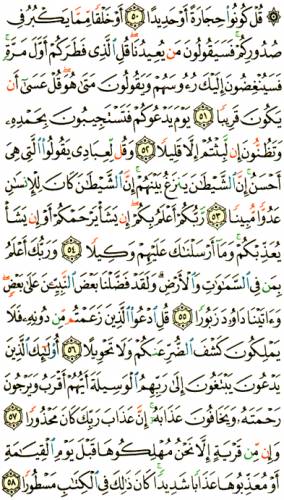 ۞ قُلْ كُونُوا۟ حِجَارَةً أَوْ حَدِيدًا ۝٥٠ أَوْ خَلْقًا مِّمَّا يَكْبُرُ فِى
صُدُورِكُمْ ۚ فَسَيَقُولُونَ مَن يُعِيدُنَا ۖ قُلِ ٱلَّذِى فَطَرَكُمْ أَوَّلَ مَرَّةٍ ۚ
فَسَيُنْغِضُونَ إِلَيْكَ رُءُوسَهُمْ وَيَقُولُونَ مَتَىٰ هُوَ ۖ قُلْ عَسَىٰٓ أَن
يَكُونَ قَرِيبًا ۝٥١ يَوْمَ يَدْعُوكُمْ فَتَسْتَجِيبُونَ بِحَمْدِهِۦ
وَتَظُنُّونَ إِن لَّبِثْتُمْ إِلَّا قَلِيلًا ۝٥٢ وَقُل لِّعِبَادِى يَقُولُوا۟ ٱلَّتِى هِىَ
أَحْسَنُ ۚ إِنَّ ٱلشَّيْطَٰنَ يَنزَغُ بَيْنَهُمْ ۚ إِنَّ ٱلشَّيْطَٰنَ كَانَ لِلْإِنسَٰنِ
عَدُوًّا مُّبِينًا ۝٥٣ رَّبُّكُمْ أَعْلَمُ بِكُمْ ۖ إِن يَشَأْ يَرْحَمْكُمْ أَوْ إِن يَشَأْ
يُعَذِّبْكُمْ ۚ وَمَآ أَرْسَلْنَٰكَ عَلَيْهِمْ وَكِيلًا ۝٥٤ وَرَبُّكَ أَعْلَمُ
بِمَن فِى ٱلسَّمَٰوَٰتِ وَٱلْأَرْضِ ۗ وَلَقَدْ فَضَّلْنَا بَعْضَ ٱلنَّبِيِّـۧنَ عَلَىٰ بَعْضٍ ۖ
وَءَاتَيْنَا دَاوُۥدَ زَبُورًا ۝٥٥ قُلِ ٱدْعُوا۟ ٱلَّذِينَ زَعَمْتُم مِّن دُونِهِۦ فَلَا
يَمْلِكُونَ كَشْفَ ٱلضُّرِّ عَنكُمْ وَلَا تَحْوِيلًا ۝٥٦ أُو۟لَٰٓئِكَ ٱلَّذِينَ
يَدْعُونَ يَبْتَغُونَ إِلَىٰ رَبِّهِمُ ٱلْوَسِيلَةَ أَيُّهُمْ أَقْرَبُ وَيَرْجُونَ
رَحْمَتَهُۥ وَيَخَافُونَ عَذَابَهُۥٓ ۚ إِنَّ عَذَابَ رَبِّكَ كَانَ مَحْذُورًا ۝٥٧
وَإِن مِّن قَرْيَةٍ إِلَّا نَحْنُ مُهْلِكُوهَا قَبْلَ يَوْمِ ٱلْقِيَٰمَةِ
أَوْ مُعَذِّبُوهَا عَذَابًا شَدِيدًا ۚ كَانَ ذَٰلِكَ فِى ٱلْكِتَٰبِ مَسْطُورًا ۝٥٨